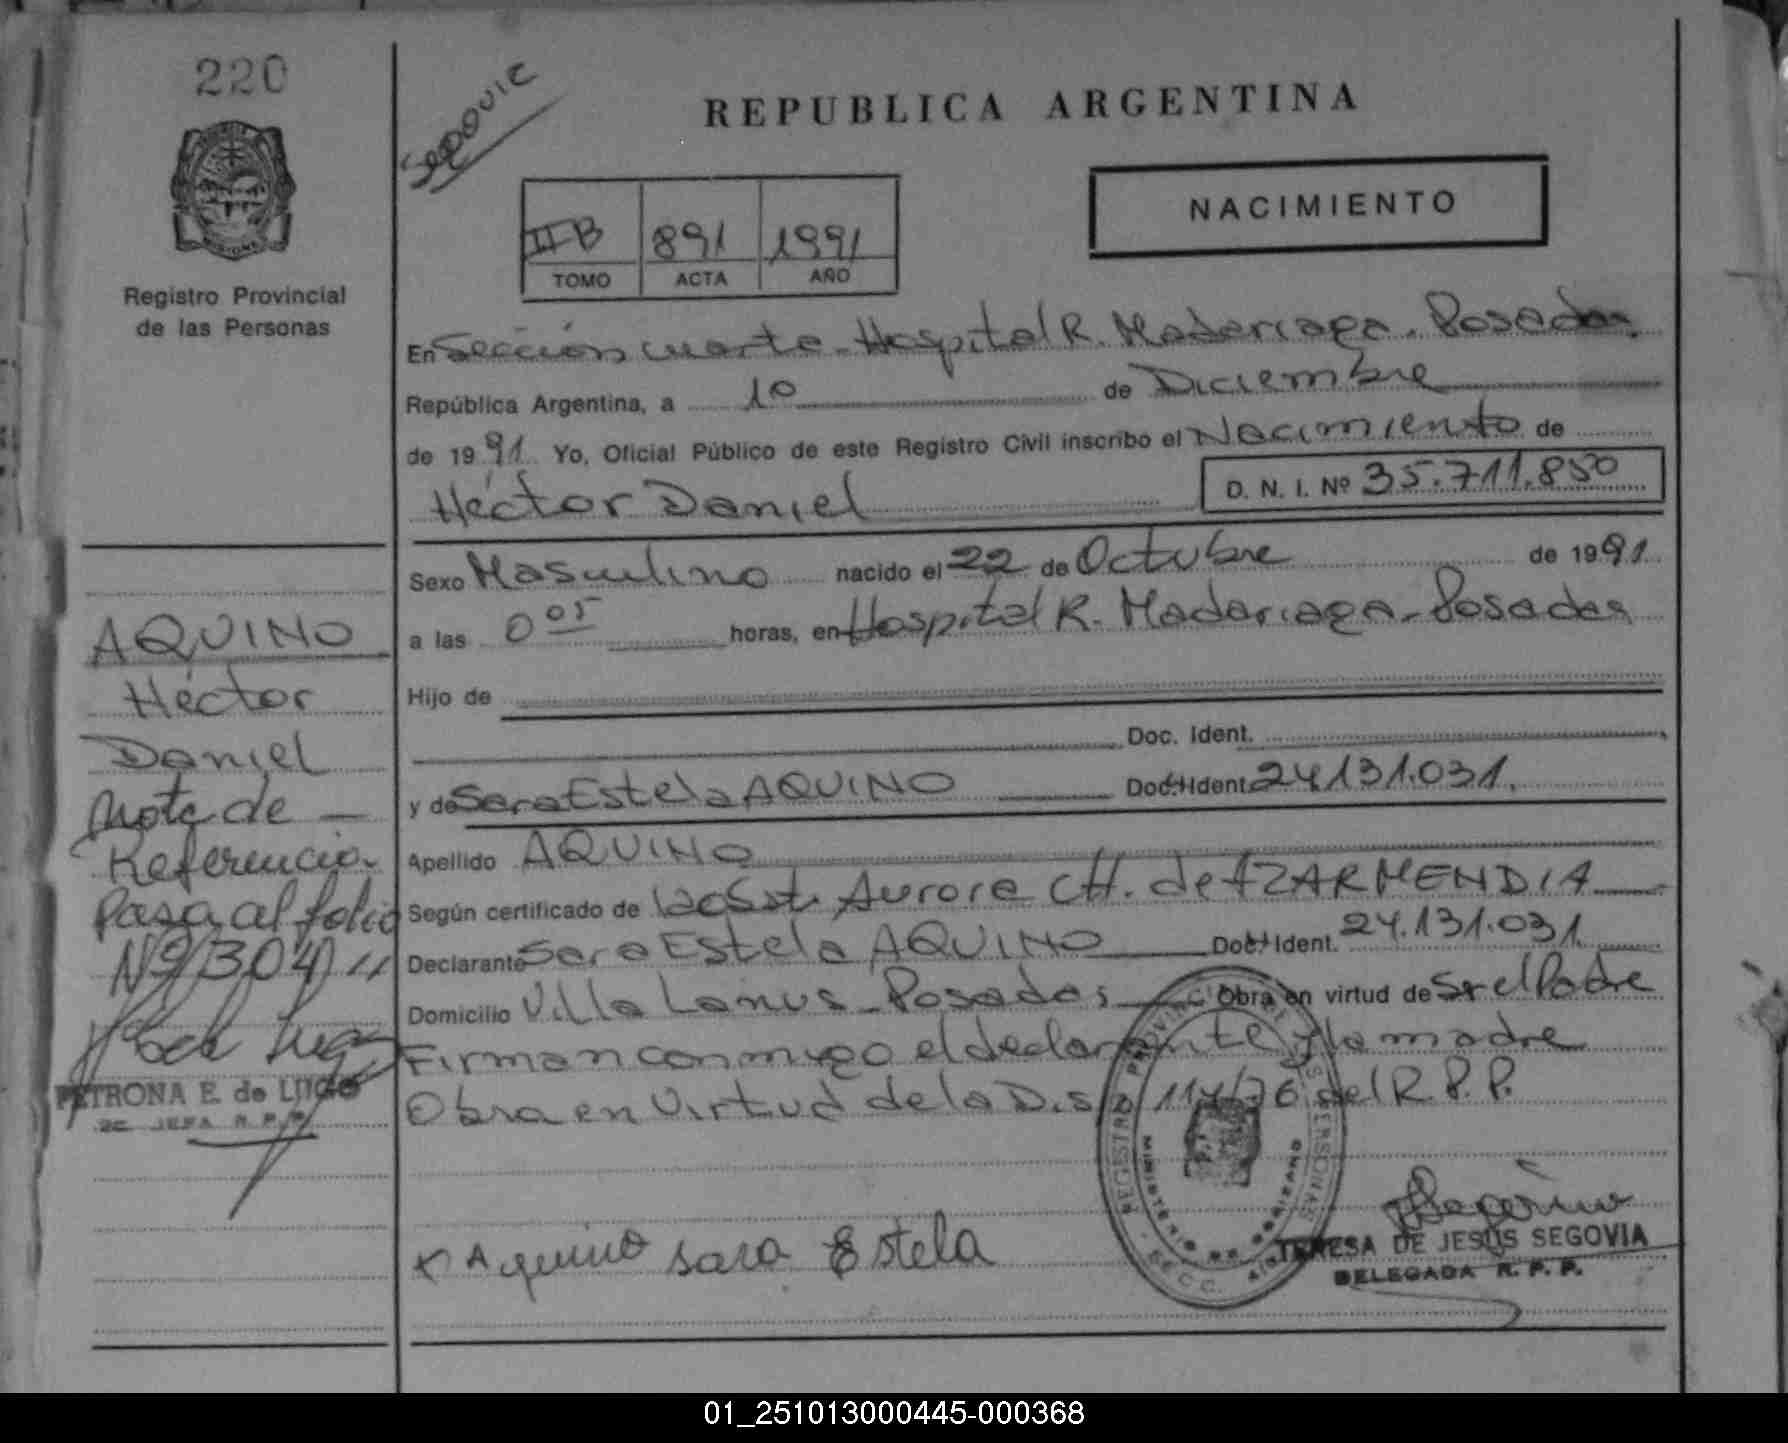 220
Registro Provincial
de las Personas
AQUINO
Héctor
Daniel
Nota de —
Referencia.
Pasa al folio
Nº 304
PETRONA E. de LUGO
2C JEFA R.P.P.
REPUBLICA ARGENTINA
NACIMIENTO
II B 891 1991
TOMO ACTA AÑO
En Sección cuarta - Hospital R. Madariaga. Posadas.
República Argentina, a 10 de Diciembre
de 1991. Yo, Oficial Público de este Registro Civil inscribo el Nacimiento de
Héctor Daniel D. N. I. Nº 35.711.850
Sexo Masculino nacido el 22 de Octubre de 1991
a las 0 05 horas, en Hospital R. Madariaga - Posadas
Hijo de
Doc. Ident.
y de Sara Estela AQUINO Doc. Ident. 24.131.031.
Apellido AQUINO
Según certificado de Obst. Aurora CH. de AZARMENDIA
Declarante Sara Estela AQUINO Doc. Ident. 24.131.031.
Domicilio Villa Lanus - Posadas Obra en virtud de Ser el Padre
Firman conmigo el declarante y la madre
Obra en Virtud de la Dis. 114/76 del R.P.P.
REGISTRO PROVINCIAL DE LAS PERSONAS
MINISTERIO DE GOBIERNO
x Aquino Sara Estela
TERESA DE JESUS SEGOVIA
DELEGADA R. P. P.
01_251013000445-000368